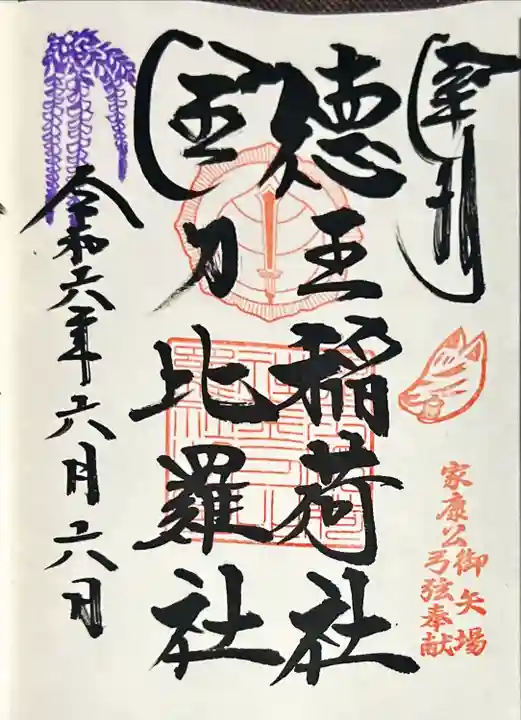 奉拝
徳王稲荷社
金刀比羅社
令和六年六月六日
家康公御矢場
弓弦奉献